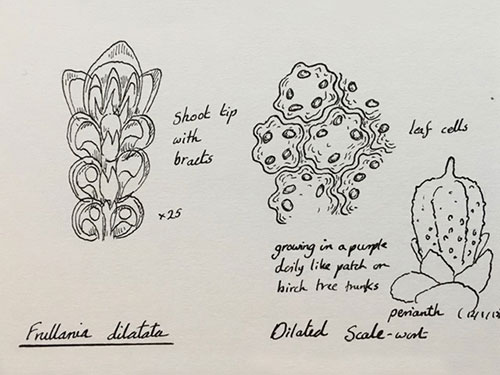 Shoot tip
with
bracts
×25
leaf cells
growing in a purple
doily like patch on
birch tree trunks
perianth
Frullania dilatata
Dilated Scale-wort